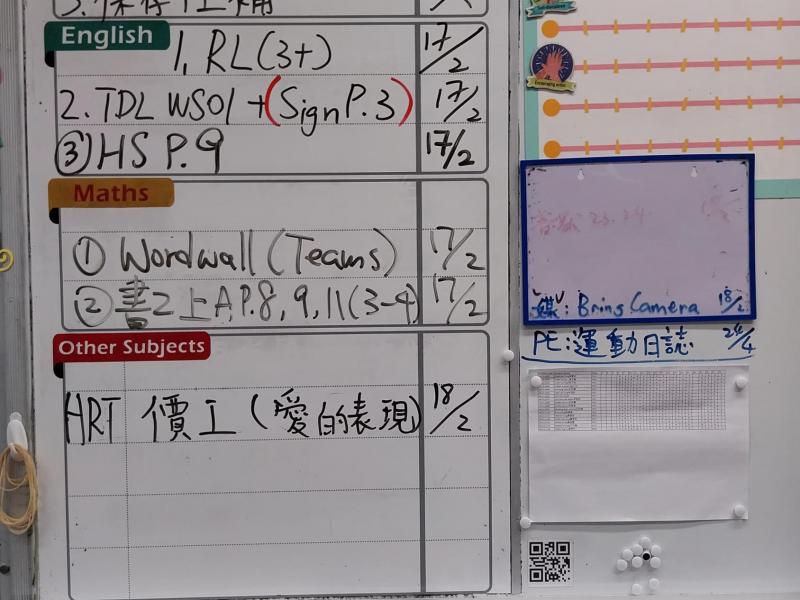 English
1. RL(3+) 17/2
2. TDL WS01 +(Sign P.3) 17/2
③ HS P.9 17/2
Maths
① Wordwall (Teams) 17/2
② 書2上A,P.8,9,11(3-4) 17/2
Other Subjects
HRT 價工(愛的表現) 18/2
媒: Bring Camera 18/2
PE:運動日誌 24/4